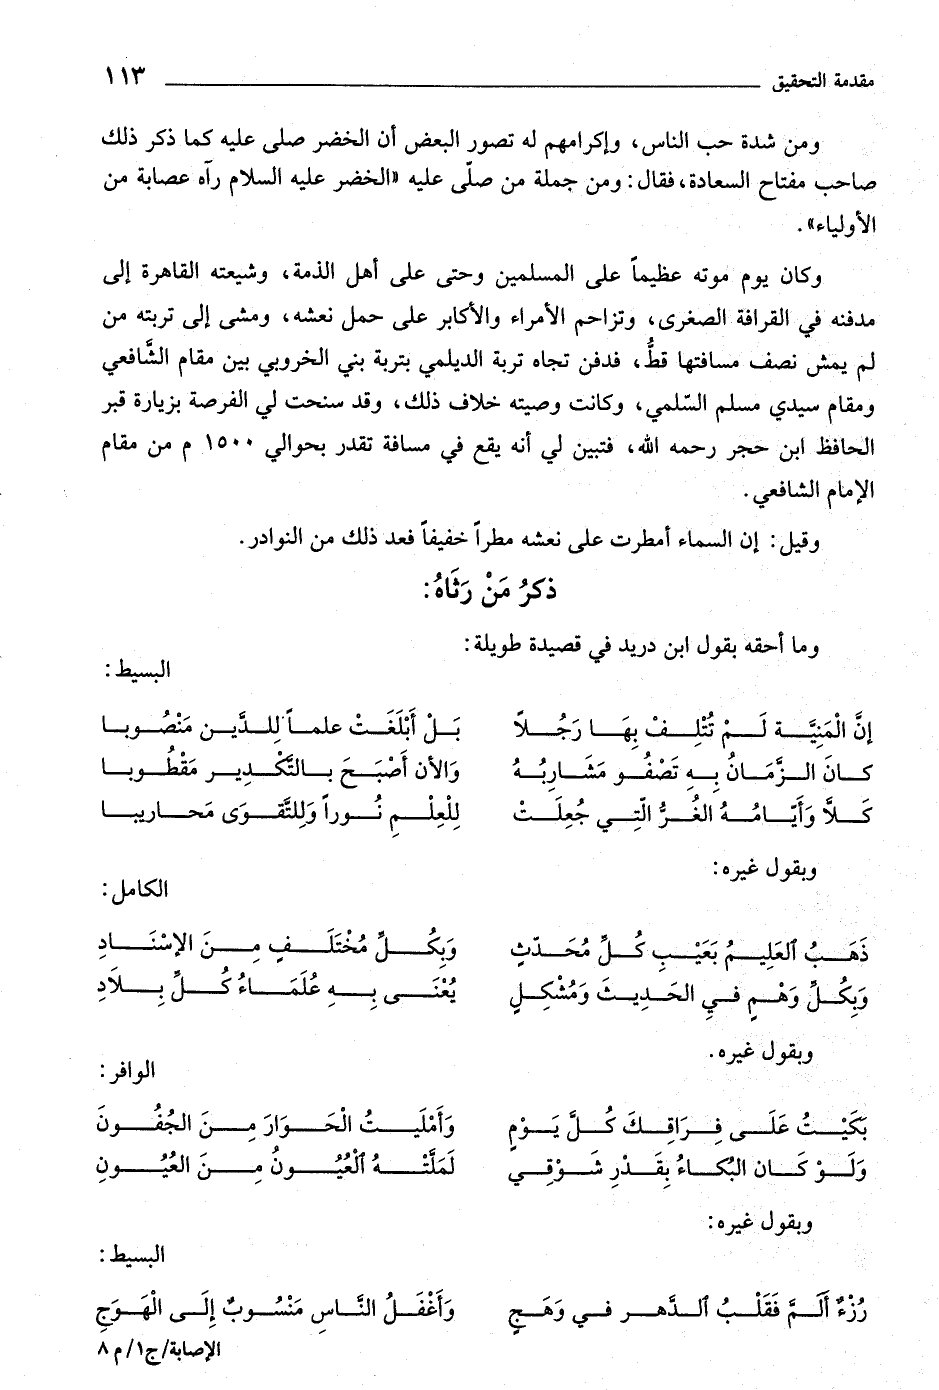 مقدمة التحقيق ١١٣
ومن شدة حب الناس، وإكرامهم له تصور البعض أن الخضر صلى عليه كما ذكر ذلك
صاحب مفتاح السعادة، فقال: ومن جملة من صلّى عليه «الخضر عليه السلام رآه عصابة من
الأولياء».
وكان يوم موته عظيماً على المسلمين وحتى على أهل الذمة، وشيعته القاهرة إلى
مدفنه في القرافة الصغرى، وتزاحم الأمراء والأكابر على حمل نعشه، ومشى إلى تربته من
لم يمش نصف مسافتها قطُّ، فدفن تجاه تربة الديلمي بتربة بني الخروبي بين مقام الشَّافعي
ومقام سيدي مسلم السّلمي، وكانت وصيته خلاف ذلك، وقد سنحت لي الفرصة بزيارة قبر
الحافظ ابن حجر رحمه الله، فتبين لي أنه يقع في مسافة تقدر بحوالي ١٥٠٠ م من مقام
الإمام الشافعي.
وقيل: إن السماء أمطرت على نعشه مطراً خفيفاً فعد ذلك من النوادر.
ذكرُ مَنْ رَثَاهُ:
وما أحقه بقول ابن دريد في قصيدة طويلة:
البسيط:
إنَّ الْمَنِيَّةَ لَمْ تُتْلِفْ بِهَا رَجُلاً بَلْ أَبْلَغَتْ علماً لِلدَّينِ مَنْصُوبا
كانَ الزَّمَانُ بِهِ تَصْفُو مَشَارِبُهُ وَالأن أَصْبَحَ بالتَّكْدِيرِ مَقْطُوبا
كَلاَّ وَأَيَّامُهُ الغُرُّ الّتِي جُعِلَتْ لِلْعِلْمِ نُوراً وَلِلتَّقْوَى مَحاريبا
وبقول غيره:
الكامل:
ذَهَبُ اَلعَلِيمُ بَعَيْبِ كُلِّ مُحَدّثٍ وَبِكُلِّ مُخْتَلَفٍ مِنَ الإسْنَادِ
وَبِكُلِّ وَهْمٍ فيِ الحَدِيثَ وَمُشْكِلٍ يُعْنَى بِهِ عُلَمَاءُ كُلِّ بِلاَدِ
وبقول غيره.
الوافر:
بَكَيْتُ عَلَى فِرَاقِكَ كُلَّ يَوْمٍ وَأَمْلَيتُ الْحَوَارَ مِنَ الجُفُونَ
وَلَوْ كَان البُكاءُ بِقَدْرِ شَوْقِي لَمَلَّتْهُ اَلْعُيُونُ مِنَ العُيُونِ
وبقول غيره:
البسيط:
رُزْءٌ أَلَمَّ فَقَلْبُ اَلدَّهر في وَهَجٍ وَأَغْفَلُ النَّاسِ مَنْسُوبٌ إِلَى الْهَوَجِ
الإصابة/ج١/م٨